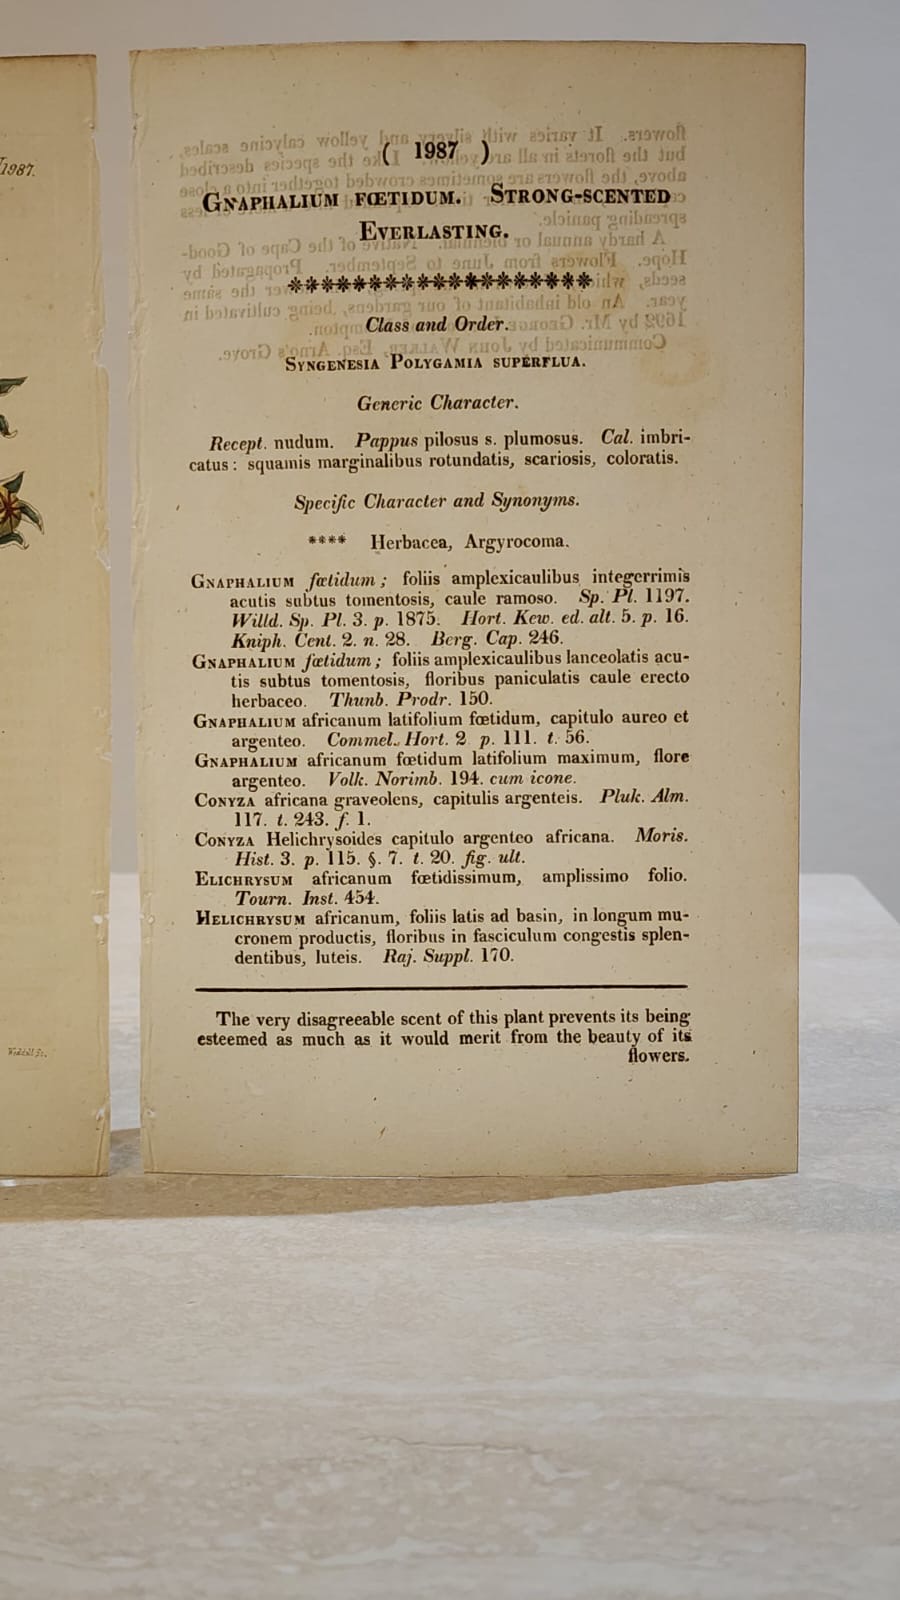 1987.
Weddell Sc.
( 1987 )
GNAPHALIUM FŒTIDUM. STRONG-SCENTED
EVERLASTING.
✻✻✻✻✻✻✻✻✻✻✻✻✻✻✻✻✻✻✻
Class and Order.
SYNGENESIA POLYGAMIA SUPERFLUA.
Generic Character.
Recept. nudum. Pappus pilosus s. plumosus. Cal. imbri-
catus: squamis marginalibus rotundatis, scariosis, coloratis.
Specific Character and Synonyms.
**** Herbacea, Argyrocoma.
GNAPHALIUM fœtidum; foliis amplexicaulibus integerrimis
acutis subtus tomentosis, caule ramoso. Sp. Pl. 1197.
Willd. Sp. Pl. 3. p. 1875. Hort. Kew. ed. alt. 5. p. 16.
Kniph. Cent. 2. n. 28. Berg. Cap. 246.
GNAPHALIUM fœtidum; foliis amplexicaulibus lanceolatis acu-
tis subtus tomentosis, floribus paniculatis caule erecto
herbaceo. Thunb. Prodr. 150.
GNAPHALIUM africanum latifolium fœtidum, capitulo aureo et
argenteo. Commel. Hort. 2 p. 111. t. 56.
GNAPHALIUM africanum fœtidum latifolium maximum, flore
argenteo. Volk. Norimb. 194. cum icone.
CONYZA africana graveolens, capitulis argenteis. Pluk. Alm.
117. t. 243. f. 1.
CONYZA Helichrysoides capitulo argenteo africana. Moris.
Hist. 3. p. 115. §. 7. t. 20. fig. ult.
ELICHRYSUM africanum fœtidissimum, amplissimo folio.
Tourn. Inst. 454.
HELICHRYSUM africanum, foliis latis ad basin, in longum mu-
cronem productis, floribus in fasciculum congestis splen-
dentibus, luteis. Raj. Suppl. 170.
The very disagreeable scent of this plant prevents its being
esteemed as much as it would merit from the beauty of its
flowers.